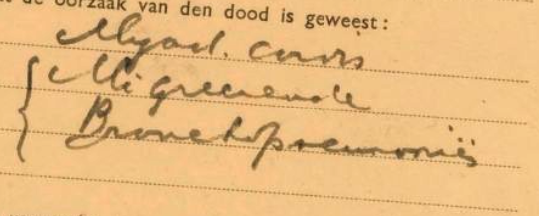 de oorzaak van den dood is geweest:
Myod. cordis
Migreerende
Bronchopneumonië